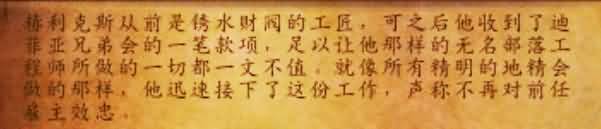 赫利克斯从前是锈水财阀的工匠，可之后他收到了迪
菲亚兄弟会的一笔款项，足以让他那样的无名部落工
程师所做的一切都一文不值。就像所有精明的地精会
做的那样，他迅速接下了这份工作，声称不再对前任
雇主效忠。